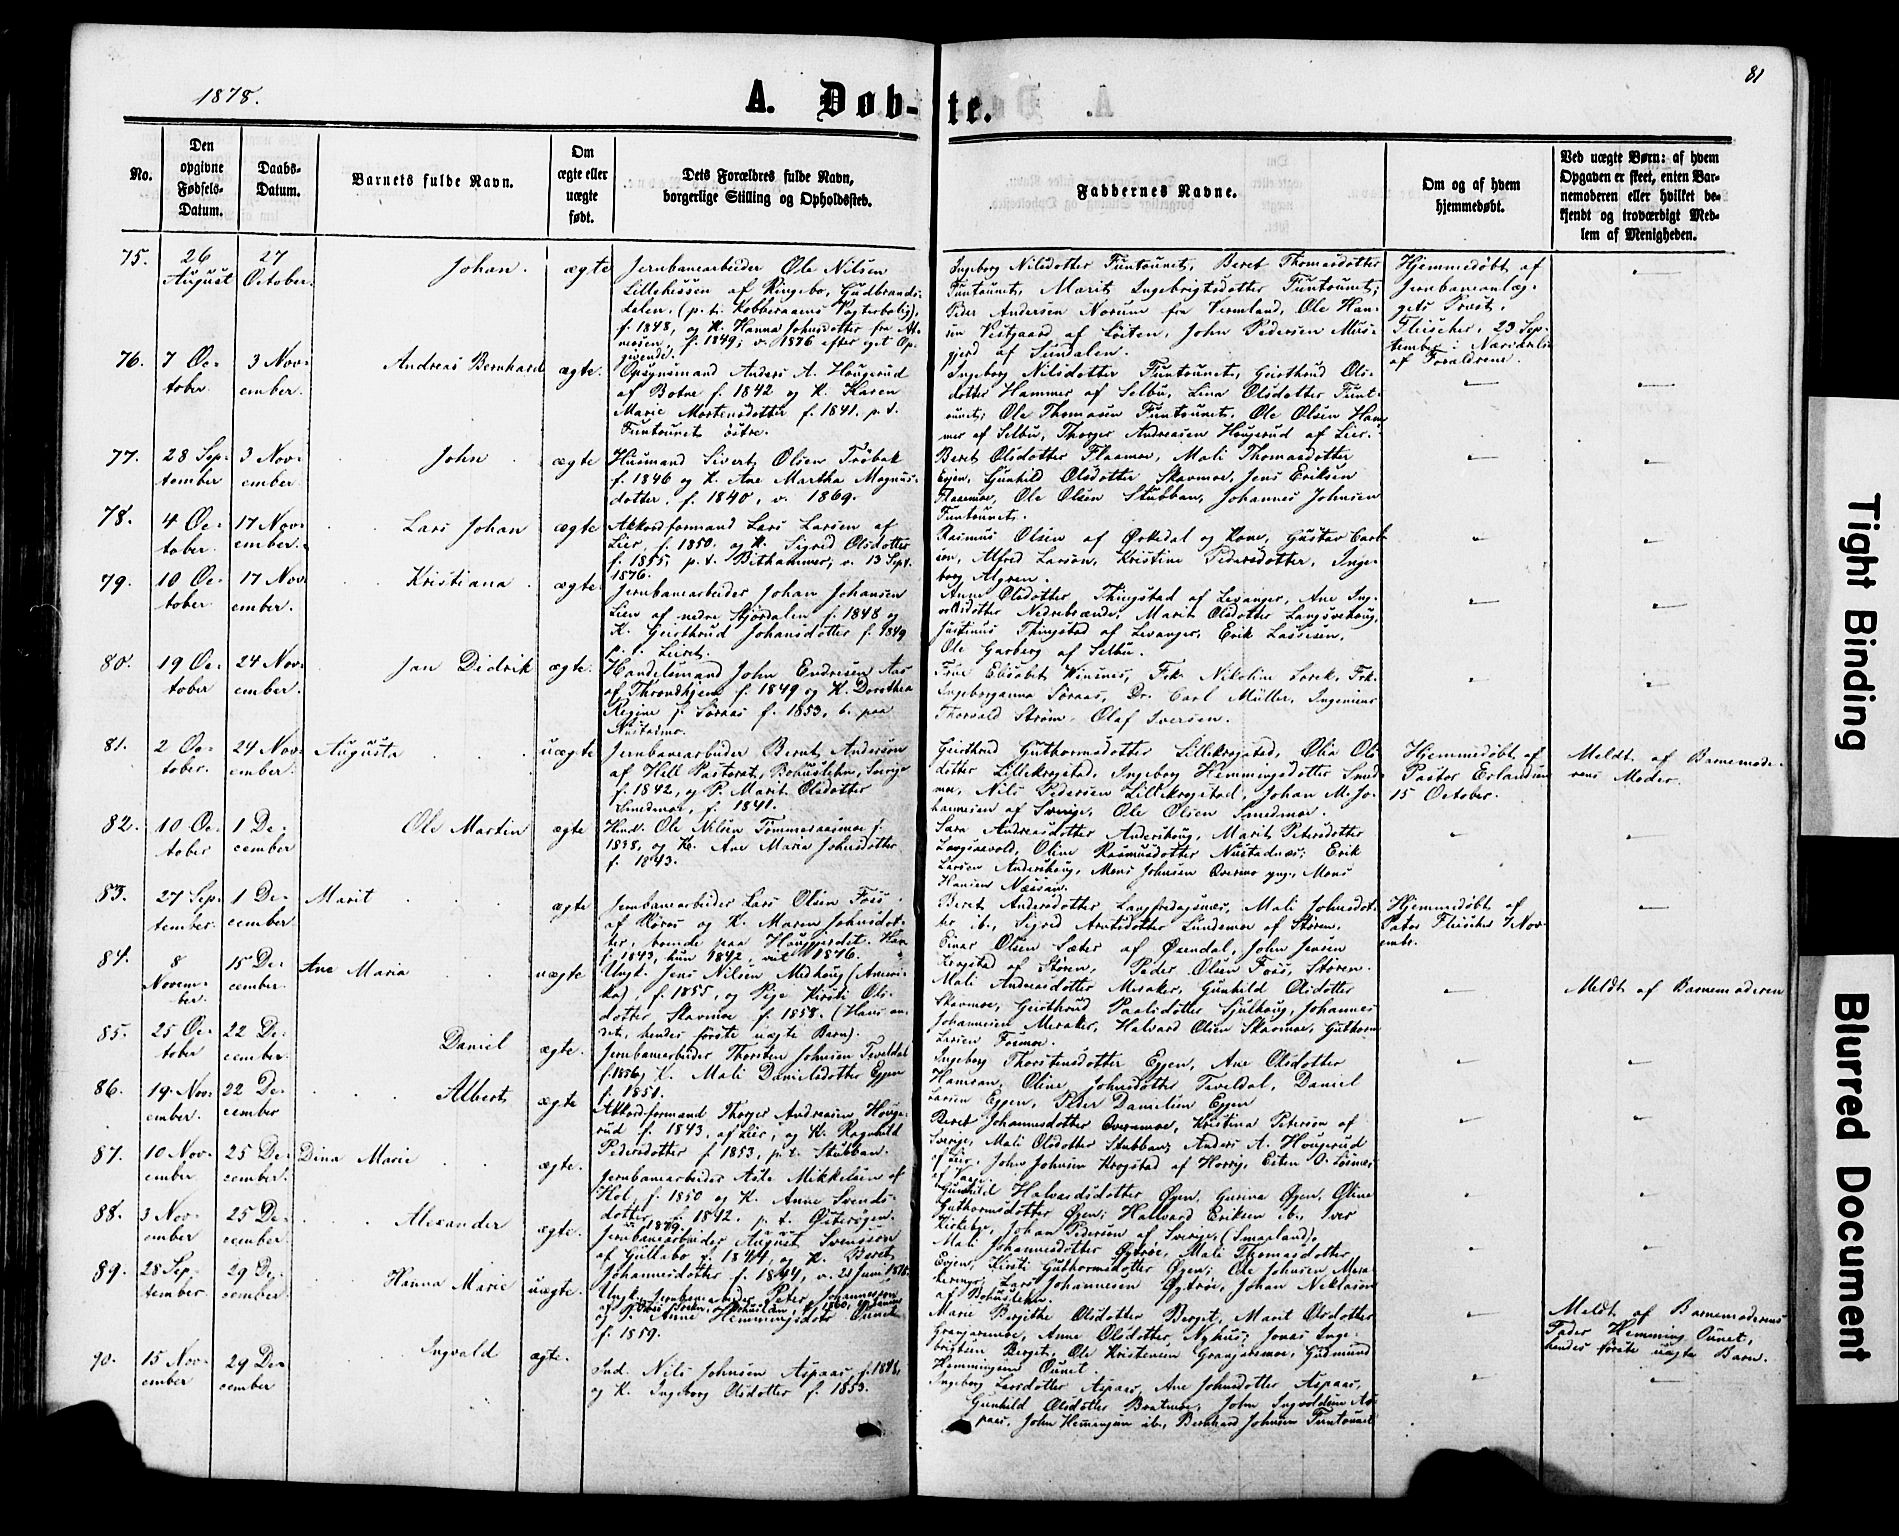 1878.
A. Døb-te.
81
No.
Den opgivne Fødsels-Datum.
Daabs-Datum.
Barnets fulde Navn.
Om ægte eller uægte født.
Dets Forældres fulde Navn, borgerlige Stilling og Opholdssted.
Faddernes Navne.
Om og af hvem hjemmedøbt.
Ved uægte Børn: af hvem Opgaven er skeet, enten Barnemoderen eller hvilket bekjendt og troværdigt Medlem af Menigheden.
75.
26 August
27 October.
Johan.
ægte
Jernbanearbeider Ole Nilsen
Lillehessen af Ringebo, Gudbrands-
dalen, (p. t. Kobberaaens Vogterbolig),
f. 1848, og K. Hanna Johnsdotter fra
f. 1849; v. 1876 efter eget Op-
givende.
Ingeborg Nilsdotter Funtaunet, Beret Thomasdotter
Funtaunet, Marit Ingebrigtsdotter Funtaunet,
Peder Andersen Noreim fra Vermland, Ole Han-
sen Vestgaard af Løiten, John Pedersen Mus-
gjerd af Sundalen.
Hjemmedøbt af
Jernbaneanlæg-
gets Præst,
Fleischer, 23 Sep-
tember i Nærværelse
af Forældrene.
76.
7 Oc-
tober
3 Nov-
ember.
Andreas Bernhard
ægte.
Opsynsmand Anders A. Haugerud
af Botne f. 1842 og K. Karen
Marie Mortensdotter f. 1841. p. t.
Funtaunet østre.
Ingeborg Nilsdotter Funtaunet, Gjertrud Ols-
dotter Hammer af Selbu, Lina Olsdotter Funt-
aunet, Ole Thomasen Funtaunet, Ole Olsen Ham-
mer af Selbu, Thorger Andreasen Haugerud af Lier.
77.
28 Sep-
tember
3 Nov-
ember.
John
ægte
Husmand Sivert Olsen Trøbak
f. 1846 og K. Ane Martha Magnus-
dotter, f. 1840, v. 1869.
Beret Olsdotter Flaamo, Mali Thomasdotter
Eggen, Gunhild Olsdotter Skavmoe, Jens Eriksen
Flaamoe, Ole Olsen Stubban, Johannes Johnsen
Funtaunet.
78.
4 Oc-
tober.
17 Nov-
ember.
Lars Johan
ægte
Akkordformand Lars Larsen af
Lier f. 1850. og K. Sigrid Olsdotter
f. 1855, p. t. Bithammer, v. 13 Sept.
1876.
Rasmus Olsen af Ørkedal og Kone, Gustav Carl-
sen, Alfred Larsen, Kristine Pedersdotter, Inge-
borg Algren.
79.
10 Oc-
tober
17 Nov-
ember.
Kristiana
ægte.
Jernbanearbeider Johan Johansen
Lien af nedre Stjørdalen f. 1848 og
K. Gjertrud Johansdotter f. 1849
p. t. Leiret.
Anne Olsdotter Thingstad af Levanger, Ane Ing-
valdsdotter Nedrebrænde, Marit Olsdotter Langsvehaug,
Justinus Thingstad af Levanger, Erik Larsen,
Ole Garberg af Selbu.
80.
19 Oc-
tober
24 Nov-
ember.
Jan Didrik
ægte.
Handelsmand John Endresen Aas
af Throndhjem f. 1849 og K. Dorothea
Regine f. Søraas f. 1853, b. paa
Nustadmo.
Frue Elisabet Winsnes, Frk. Nikoline Lorck, Frk.
Ingeborganna Søraas, Dr. Carl Müller, Ingeniør
Thorvald Strøm, Olaf Iversen.
81.
2 Oc-
tober.
24 Nov-
ember.
Augusta
uægte
Jernbanearbeider Bernt Anderson
af Hell Pastorat, Bohuslehn, Sverige
f. 1842, og P. Marit Olsdotter
Smedmoe, f. 1841.
Gjertrud Guthormsdotter Lillekrogstad, Ola Ols-
dotter Lillekrogstad, Ingeborg Hemmingsdotter Smed-
moe, Nils Pedersen Lillekrogstad, Johan M. Jo-
hannesen af Sverige, Ole Olsen Smedmoe.
Hjemmedøbt af
Pastor Erlandsen
15 October.
Meldt af Barnemode-
rens Moder.
82.
10 Oc-
tober
1 De-
cember
Ole Martin
ægte
Husd. Ole Nilsen Tømmeraasmoe f.
1838, og K. Ane Maria Johnsdotter
f. 1843.
Sara Andreasdotter Andershaug, Marit Petersdotter
Langnesvold, Oline Rasmusdotter Nustadnæs; Erik
Larsen Andershaug, Mons Johnsen Overmo yng., Mons
Hansen Næssan.
83.
27 Sep-
tember.
1 De-
cember
Marit
ægte
Jernbanearbeider Lars Olsen Foss
af Røros og K. Maren Johnsdot-
ter, boende paa Haugpladst. Han
f. 1843, hun 1842, viet 1876.
Beret Andersdotter Langfredagsnæs, Mali Johnsdot-
ter ib., Sigrid Arntsdotter Lundemo af Støren,
Einar Olsen Sæter af Øxendal, John Jensen
Krogstad af Støren, Peder Olsen Foss, Støren.
Hjemmedøbt af
Pastor Fleischer 7 Nov-
embr.
84.
8
Novem-
ber.
15 De-
cember.
Ane Maria
uægte
Ungk. Jens Nilsen Medhaug (Ameri-
ka), f. 1855, og Pige Kirsti Ols-
dotter Skavmoe f. 1858. (Hans an-
det, hendes første uægte Barn).
Mali Andreasdotter Meraker, Gunhild Olsdotter
Skavmoe, Gjertrud Paalsdotter Sjulhaug, Johannes
Johannesen Meraker, Halvard Olsen Skavmoe, Guthorm
Larsen Fosmoe.
Meldt af Barnemoderen
85.
25 Oc-
tober
22 De-
cember.
Daniel
ægte.
Jernbanearbeider Thorsten Johnsen Teveldal
f. 1856, K. Mali Danielsdotter Eggen
f. 1851.
Ingeborg Thorstensdotter Eggen, Ane Olsdotter
Hamran, Oline Johnsdotter Teveldal, Daniel
Larsen Eggen, Peder Danielsen Eggen
86.
19 Nov-
ember.
22 De-
cember
Albert
ægte
Akkordformand Thorger Andreasen Hauge-
rud f. 1843. af Lier, og K. Ragnhild
Pedersdotter f. 1853, p. t. Stubban.
Beret Johannesdotter Overmoe, Kristina Petersen af
Sverige, Mali Olsdotter Stubban, Anders A. Haugerud
af Lier, John Johnsen Krogstad af Horrig, Esten O. Løsnæs
af Haga.
87.
10 Nov-
ember
25 De-
cember.
Dina Marie
ægte.
Jernbanearbeider Asle Mikkelsen af
Hol, f. 1850 og K. Anne Svends-
dotter, f. 1842. p. t. Østerøgen.
Gunhild Halvardsdotter Øgen, Gurina Øgen, Oline
Guthormsdotter Øgen; Hallvard Eriksen ib., Iver
Kirkeby, Johan Pedersen af Sverige, (Smaaland).
88.
3 Nov-
ember
25 De-
cember.
Alexander
ægte.
Jernbanearbeider August Svensson
af Gullabo f. 1844, og K. Beret
Johannesdotter f. 1844, v. 21 Juni 1876.
Mali Johannesdotter Øytrøe, Mali Thomasdotter
Eggen, Kirsti Guthormsdotter Øgen; Ole Johnsen Mera-
kernæs, Lars Johannesen Øytrøe, Johan Niklason
af Bohuslehn.
89.
28 Sep-
tember.
29 De-
cember.
Hanna Marie
uægte.
Ungk. Jernbanearbeider Peter Johannesson
og P. Anne Hemmingsdotr Ounet
f. 1859.
Marie Bergithe Olsdotter Berget, Marit Olsdotter
Granjarmoe, Anne Olsdotter Nyhus; Jonas Inge-
britsen Berget, Ole Kristensen Granjarmoe, Gudmund
Hemmingsen Ounet.
Meldt af Barnemoderens
Fader Hemming Ounet,
hendes første uægte Barn.
90.
15 Nov-
ember
29 De-
cember
Ingvald
ægte.
Ind. Nils Johnsen Aspaas, f. 1848,
og K. Ingeborg Olsdotter f. 1853.
Ingeborg Larsdotter Aspaas, Ane Johnsdotter Aspaas,
Gunhild Olsdotter Bratmoe, John Ingvoldsen As-
paas, John Hemmingsen ib., Bernhard Johnsen Funtaunet
Tight Binding
Blurred Document